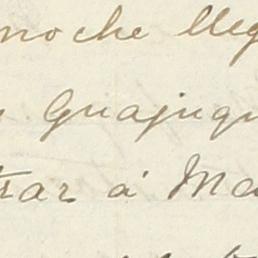 noche lleg
Guajuqu
trar á Ma